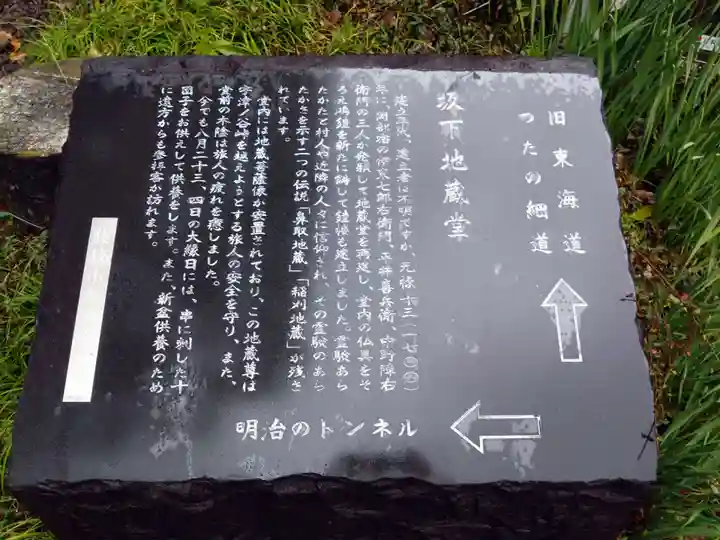 旧東海道
つたの細道
坂下地蔵堂
建立年次、建立者は不明ですが、元禄十三(一七〇〇)
年に、岡部宿の伊東七郎右衛門、平井喜兵衛、中野陣右
衛門の三人が発願して地蔵堂を再建し、堂内の仏具をそ
ろえ鴻鐘を新たに鋳して鐘楼も建立しました。霊験あら
たかだと村人や近隣の人々に信仰され、その霊験のあら
たかさを示す二つの伝説「鼻取地蔵」「稲刈地蔵」が残さ
れています。
堂内には地蔵菩薩像が安置されており、この地蔵尊は
宇津ノ谷峠を越えようとする旅人の安全を守り、また、
堂前の木陰は旅人の疲れを癒しました。
今でも八月二十三、四日の大縁日には、串に刺した十
団子をお供えして供養をします。また、新盆供養のため
に遠方からも参拝客が訪れます。
明治のトンネル